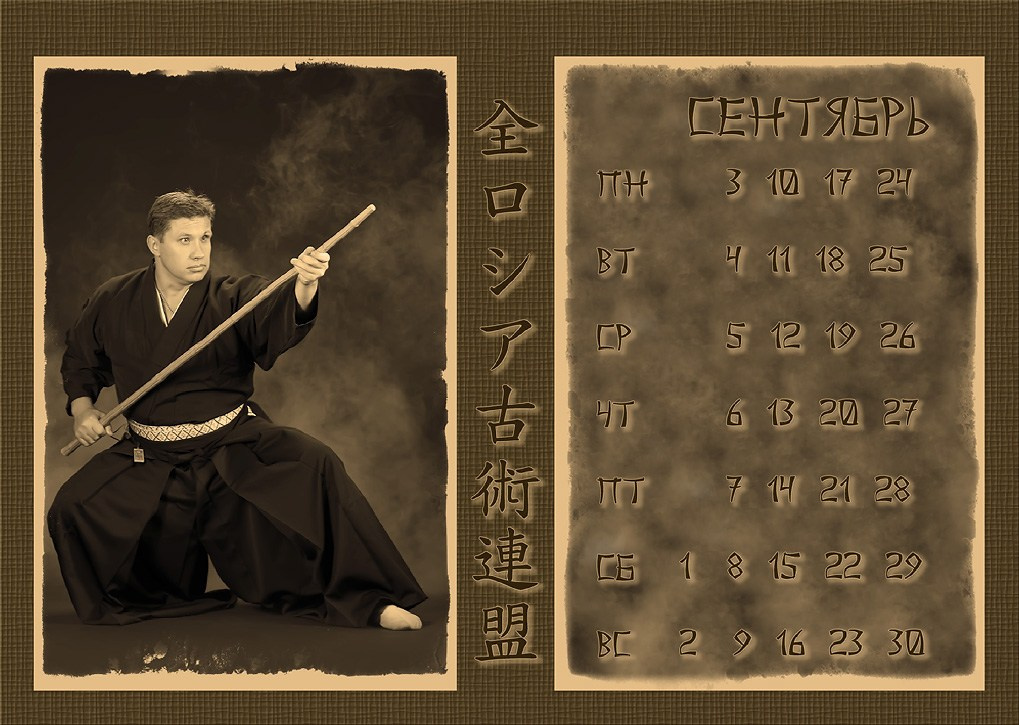 全ロシア古術連盟
СЕНТЯБРЬ
ПН 3 10 17 24
ВТ 4 11 18 25
СР 5 12 19 26
ЧТ 6 13 20 27
ПТ 7 14 21 28
СБ 1 8 15 22 29
ВС 2 9 16 23 30